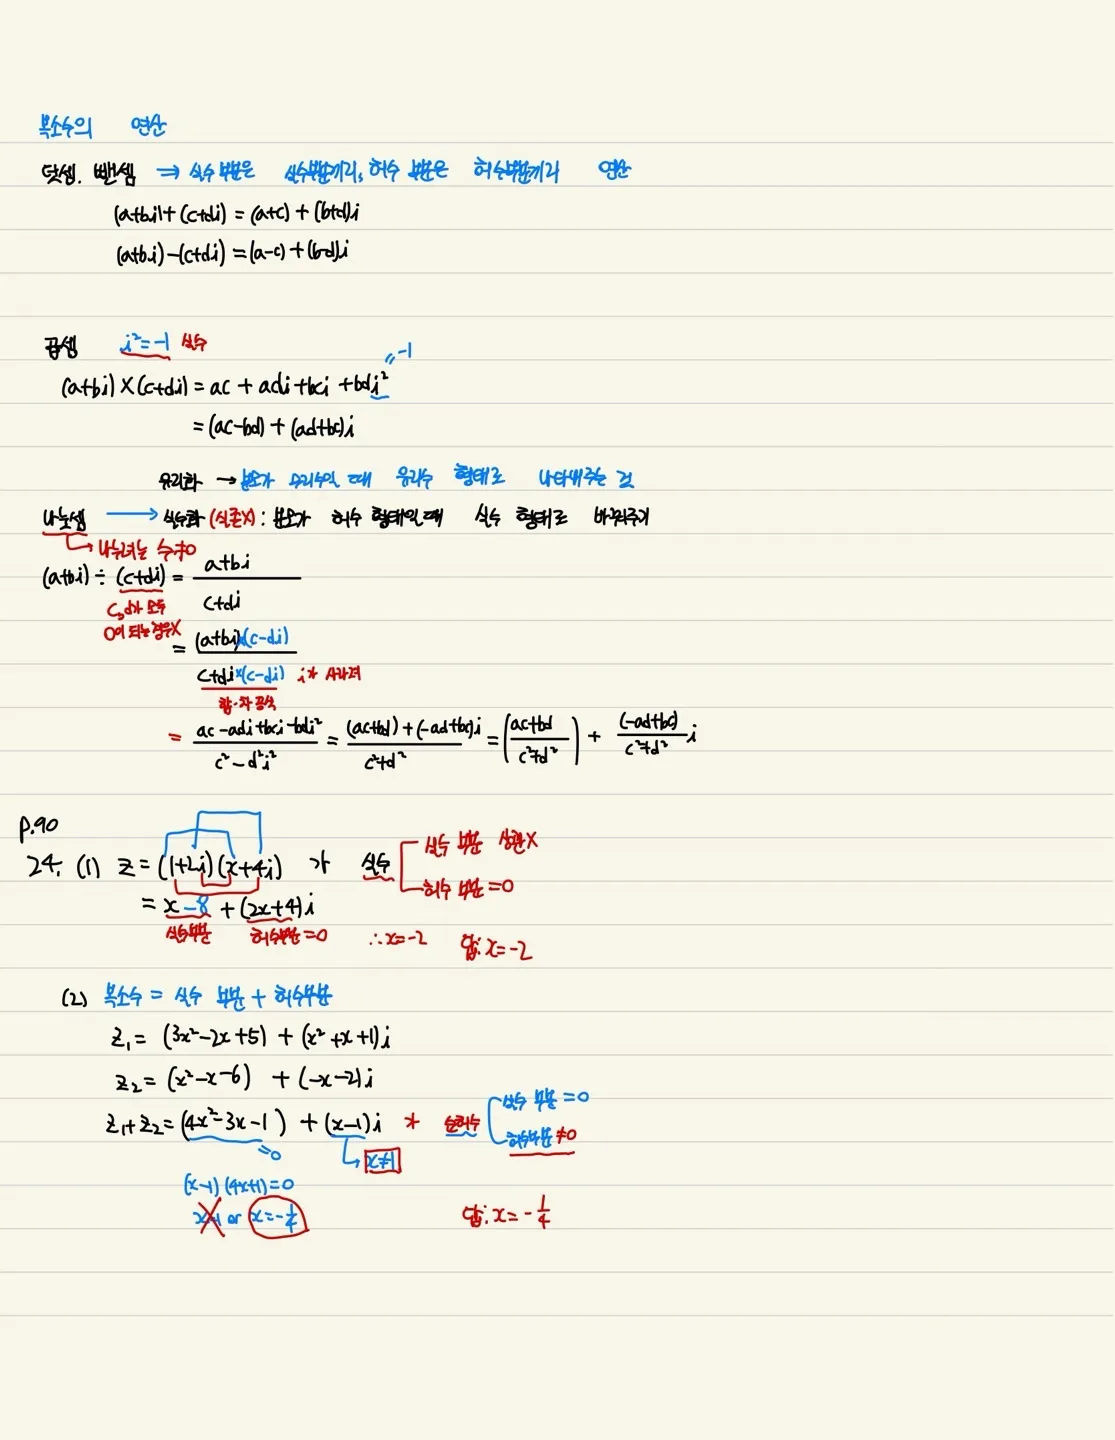 복소수의 연산
덧셈. 뺄셈 ⇒ 실수 부분은 실수부분끼리, 허수 부분은 허수부분끼리 연산
(a+bi)+(c+di) = (a+c)+(b+d)i
(a+bi)-(c+di) = (a-c)+(b-d)i
곱셈 i²=-1 실수
〃-1
(a+bi)×(c+di) = ac + adi+bci +bdi²
= (ac-bd) + (ad+bc)i
유리화 → 분모가 무리수일 때 유리수 형태로 나타내주는 것
나눗셈 → 실수화 (실존X) : 분모가 허수 형태일때 실수 형태로 바꿔주기
나누려는 수≠0
(a+bi) ÷ (c+di) = a+bi / c+di
c,d가 모두
0이 되는 경우X
= (a+bi)×(c-di) / c+di×(c-di) i가 사라져
합·차 공식
= ac-adi+bci-bdi² / c²-d²i² = (ac+bd)+(-ad+bc)i / c²+d² = (ac+bd / c²+d²) + (-ad+bc) / c²+d² i
p.90
24. (1) z = (1+2i)(x+4i) 가 실수
실수 부분 상관X
허수 부분 = 0
= x-8 + (2x+4)i
실수부분 허수부분=0 ∴x=-2 답: x=-2
(2) 복소수 = 실수 부분 + 허수부분
z₁ = (3x²-2x+5) + (x²+x+1)i
z₂ = (x²-x-6) + (-x-2)i
z₁+z₂ = (4x²-3x-1) + (x-1)i 가 순허수
실수 부분 = 0
허수부분 ≠0
=0
x≠1
(x-1)(4x+1)=0
x=1 or x=-1/4 답: x=-1/4